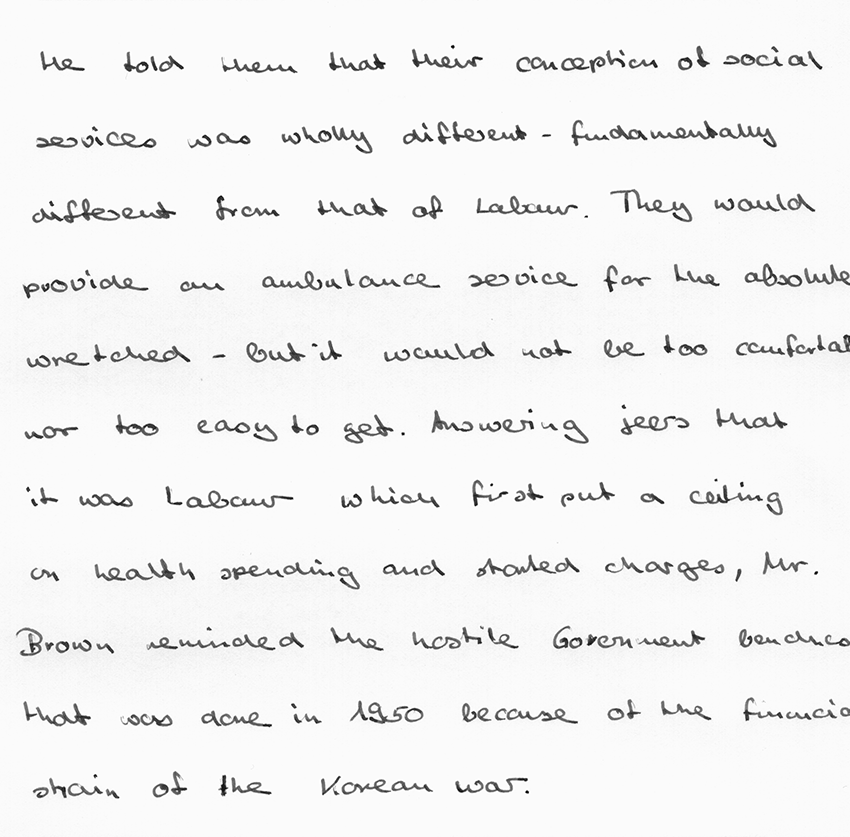 He told them that their conception of social
services was wholly different - fundamentally
different from that of Labour. They would
provide an ambulance service for the absolute
wretched - but it would not be too comfortabl
nor too easy to get. Answering jeers that
it was Labour which first put a ceiling
on health spending and started charges, Mr.
Brown reminded the hostile Government benches
that was done in 1950 because of the financia
strain of the Korean war.